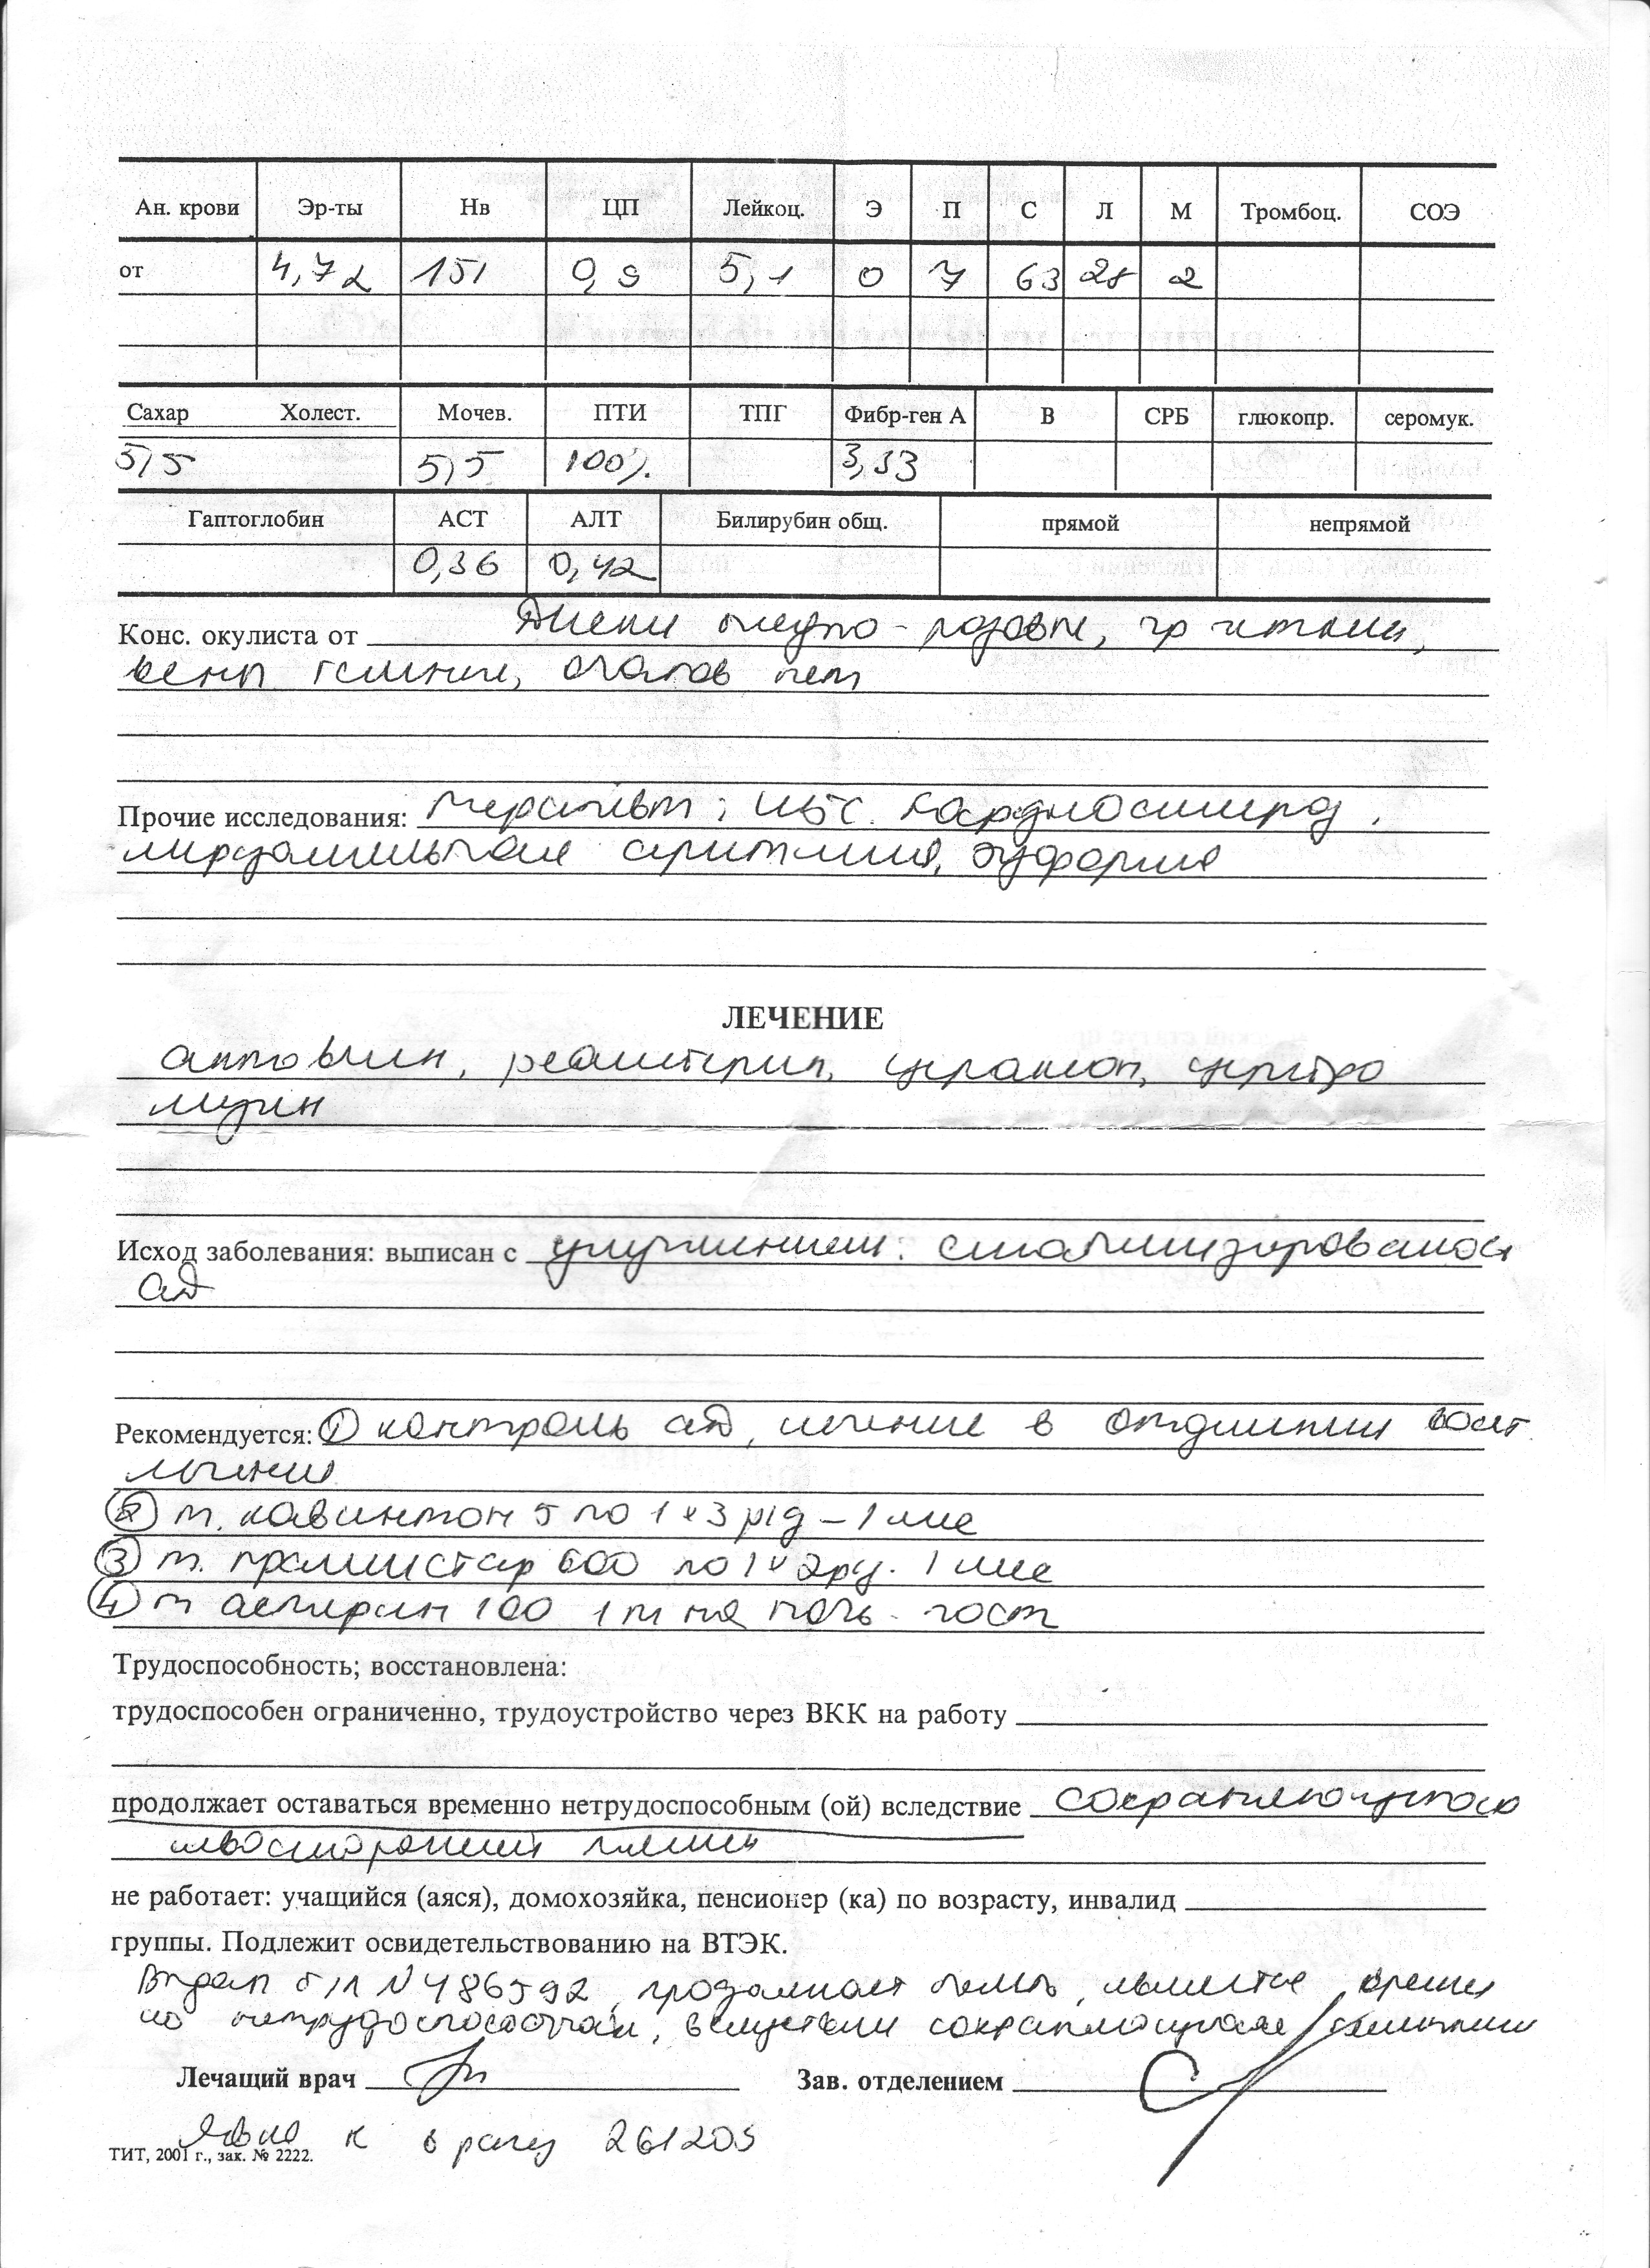 Ан. крови Эр-ты Нв ЦП Лейкоц. Э П С Л М Тромбоц. СОЭ
от 4,72 151 0,9 5,1 0 7 63 28 2
Сахар Холест. Мочев. ПТИ ТПГ Фибр-ген А В СРБ глюкопр. серомук.
5,5 5,5 100% 3,33
Гаптоглобин АСТ АЛТ Билирубин общ. прямой непрямой
0,36 0,42
Конс. окулиста от Диски бледно-розовые, гр четкие,
вены темные, очагов нет
Прочие исследования: терапевт: ИБС. Кардиосклероз.
мерцательная аритмия,
ЛЕЧЕНИЕ
актовегин, церакон, церебро
лизин
Исход заболевания: выписан с улучшением: стабилизировалось
АД
Рекомендуется: ① контроль АД, лечение в отделении восст.
лечения
② т. кавинтон 5 по 1 x 3 р/д – 1 мес
③ т. прамистар 600 по 1 x 2 р/д. 1 мес
④ т аспирин 100 1 т на ночь
Трудоспособность; восстановлена:
трудоспособен ограниченно, трудоустройство через ВКК на работу
продолжает оставаться временно нетрудоспособным (ой) вследствие сохраняющегося
левосторонней
не работает: учащийся (аяся), домохозяйка, пенсионер (ка) по возрасту, инвалид
группы. Подлежит освидетельствованию на ВТЭК.
Выдан б/л N 486592, продолжает болеть, является времен
но нетрудоспособным, вследствии сохраняющейся
Лечащий врач Зав. отделением
Явка к врачу 261205
ТИТ, 2001 г., зак. № 2222.